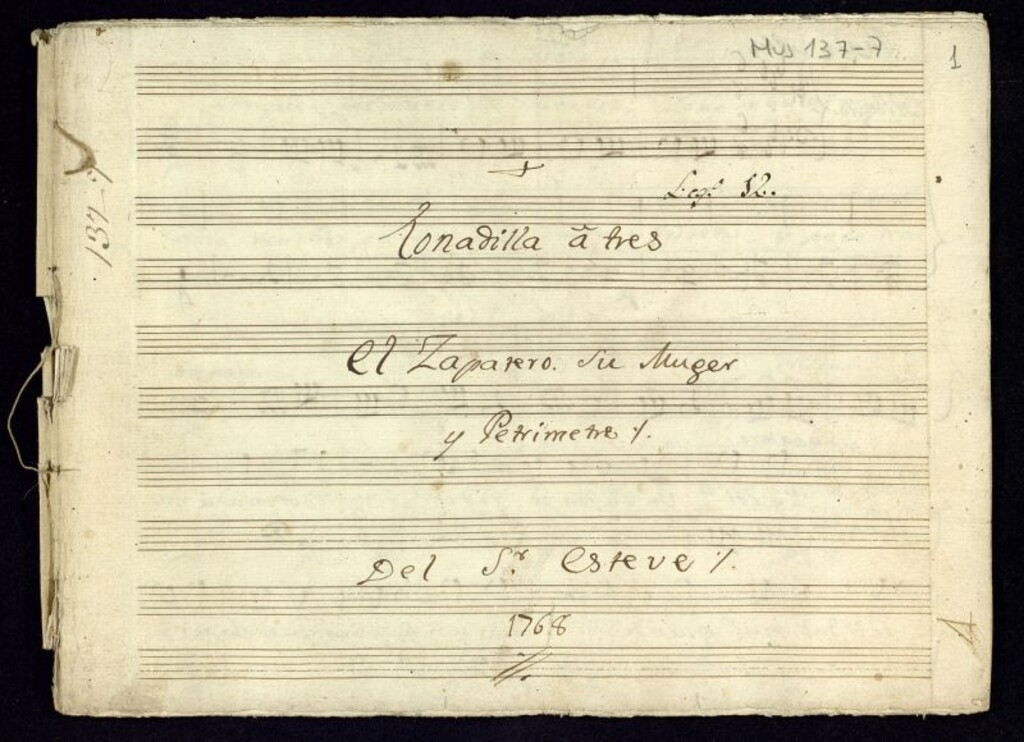 Mus 137-7
1
137-7
Leg.º 12.
Tonadilla â tres
El Zapatero. Su Muger
y Petrimetre %.
Del S.r Esteve %.
1768